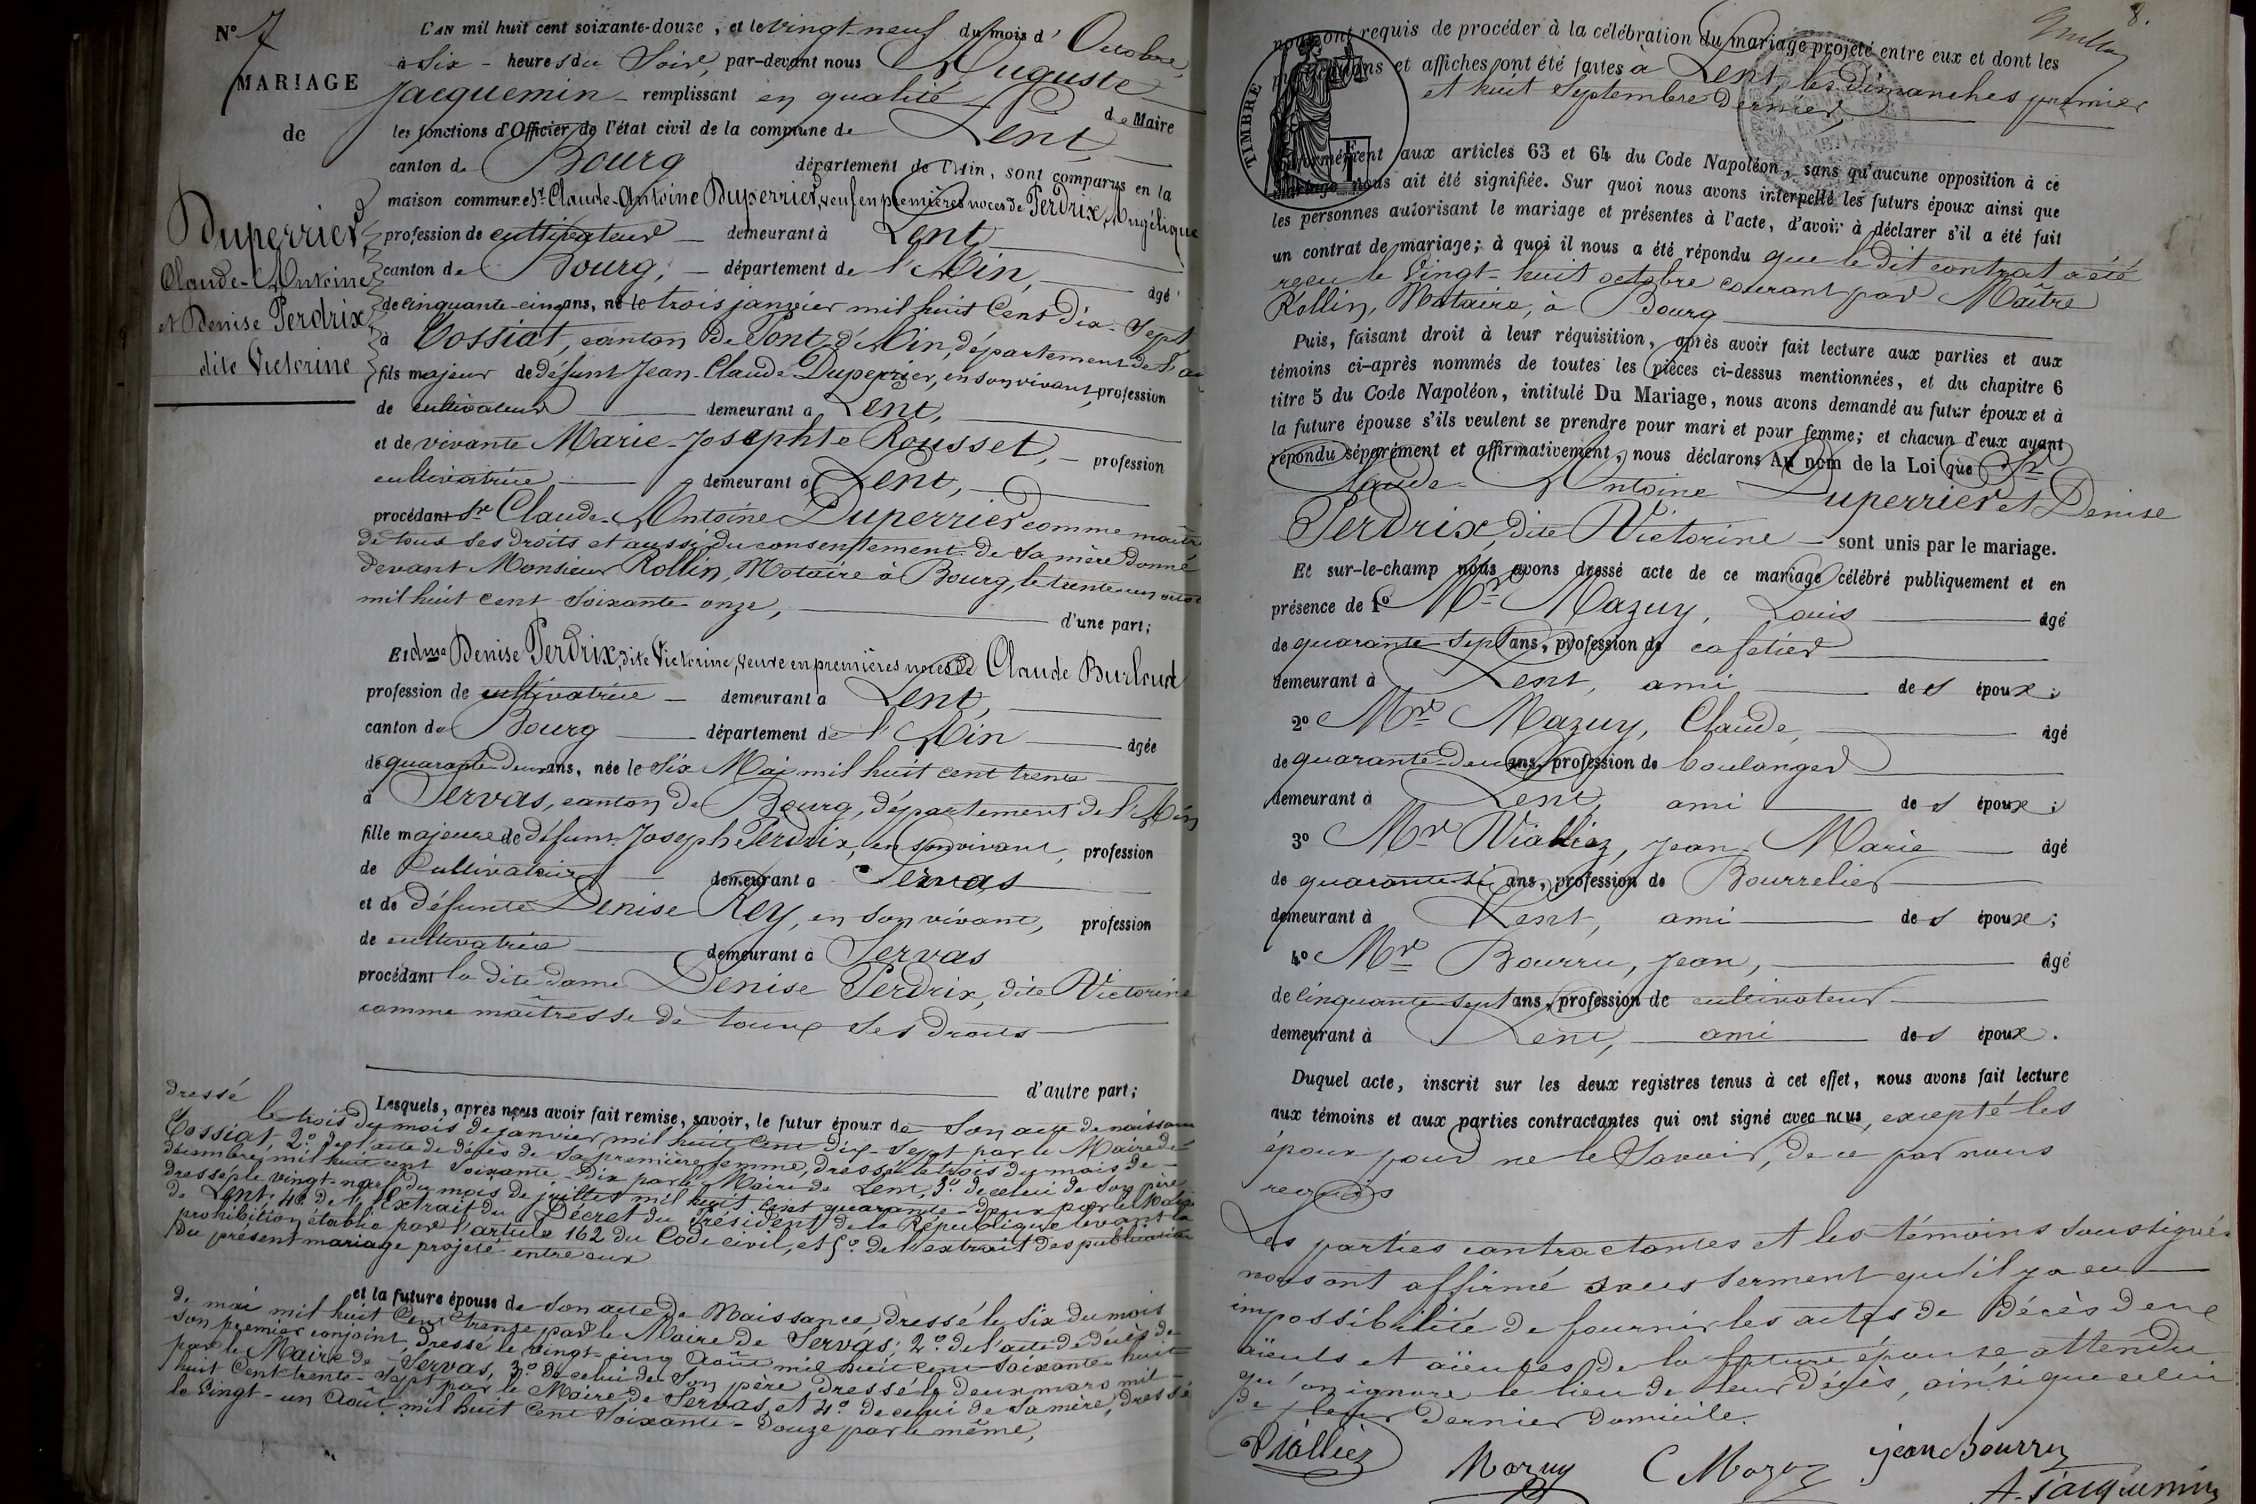 N° 7
MARIAGE
de
Duperrier
Claude-Antoine
et Denise Perdrix
dite Victorine
L'AN mil huit cent soixante-douze, et le vingt-neuf du mois d'Octobre,
à six heures du Soir, par-devant nous Auguste
Jacquemin remplissant en qualité de Maire
les fonctions d'Officier de l'état civil de la commune de Lent,
canton de Bourg département de l'Ain, sont comparus en la
maison commune Sr Claude-Antoine Duperrier, veuf en premières noces de Perdrix, Angélique
profession de cultivateur demeurant à Lent
canton de Bourg, département de l'Ain, âgé
de cinquante-cinq ans, né le trois janvier mil huit Cent dix-Sept
à Tossiat, canton de Pont-d'Ain, département de l'
fils majeur de défunt Jean-Claude Duperrier, en son vivant, profession
de cultivateur demeurant à Lent,
et de vivante Marie-Josephte Rousset, profession
cultivatrice demeurant à Lent,
procédant Sr Claude-Antoine Duperrier comme maître
de tous ses droits et aussi du consentement de sa mère donné
devant Monsieur Rollin, Notaire à Bourg, le trente-un
mil huit cent soixante-onze, d'une part;
Et dme Denise Perdrix, dite Victorine, veuve en premières noces de Claude Burloud
profession de cultivatrice demeurant à Lent,
canton de Bourg département de l'Ain âgée
de quarante-deux ans, née le Six Mai mil huit cent trente
à Servas, canton de Bourg, département de l'Ain
fille majeure de défunt Joseph Perdrix, en son vivant, profession
de Cultivateur demeurant à Servas
et de défunte Denise Rey, en son vivant, profession
de cultivatrice demeurant à Servas
procédant la dite dame Denise Perdrix, dite Victorine
comme maîtresse de tous ses droits
d'autre part;
Lesquels, après nous avoir fait remise, savoir, le futur époux de Son acte de naissance
dressé le trois du mois de janvier mil huit Cent dix-Sept par le Maire de
Tossiat, 2° de l'acte de décès de sa première femme, dressé le trois du mois de
décembre mil huit cent soixante-dix par le Maire de Lent, 3° de celui de Son père
dressé le vingt-neuf du mois de juillet mil huit cent quarante-deux par le Maire
de Lent, 4° de l'Extrait du Décret du Président de la République levant la
prohibition établie par l'article 162 du Code civil, et 5° de l'extrait des publications
du présent mariage projeté entre eux
et la future épouse de Son acte de Naissance dressé le Six du mois
de mai mil huit Cent trente par le Maire de Servas, 2° de l'acte de décès de
son premier conjoint, dressé le vingt-cinq Août mil huit Cent soixante-huit
par le Maire de Servas, 3° de celui de Son père dressé le deux mars mil
huit Cent trente-Sept par le Maire de Servas, et 4° de celui de Sa mère, dressé
le vingt-un Août mil huit Cent Soixante-Douze par le même,
8.
nous ont requis de procéder à la célébration du mariage projeté entre eux et dont les
publications et affiches ont été faites à Lent, les Dimanches premier
et huit Septembre dernier,
TIMBRE
conformément aux articles 63 et 64 du Code Napoléon, sans qu'aucune opposition à ce
mariage nous ait été signifiée. Sur quoi nous avons interpellé les futurs époux ainsi que
les personnes autorisant le mariage et présentes à l'acte, d'avoir à déclarer s'il a été fait
un contrat de mariage; à quoi il nous a été répondu que le dit contrat a été
reçu le Vingt-huit octobre courant par Maître
Rollin, Notaire, à Bourg
Puis, faisant droit à leur réquisition, après avoir fait lecture aux parties et aux
témoins ci-après nommés de toutes les pièces ci-dessus mentionnées, et du chapitre 6
titre 5 du Code Napoléon, intitulé Du Mariage, nous avons demandé au futur époux et à
la future épouse s'ils veulent se prendre pour mari et pour femme; et chacun d'eux ayant
répondu séparément et affirmativement, nous déclarons Au nom de la Loi que Sr
Claude-Antoine Duperrier et Denise
Perdrix, dite Victorine sont unis par le mariage.
Et sur-le-champ nous avons dressé acte de ce mariage célébré publiquement et en
présence de 1° Mr Mazuy, Louis âgé
de quarante-sept ans, profession de cafetier
demeurant à Lent, ami des époux;
2° Mr Mazuy, Claude, âgé
de quarante-deux ans, profession de boulanger
demeurant à Lent, ami des époux;
3° Mr Vialliez, Jean-Marie âgé
de quarante-six ans, profession de Bourrelier
demeurant à Lent, ami des époux;
4° Mr Bourru, Jean, âgé
de Cinquante-sept ans, profession de cultivateur
demeurant à Lent, ami des époux.
Duquel acte, inscrit sur les deux registres tenus à cet effet, nous avons fait lecture
aux témoins et aux parties contractantes qui ont signé avec nous, excepté les
époux pour ne le Savoir, de ce par nous
requis
Les parties contractantes et les témoins soussignés
nous ont affirmé sous serment qu'il y a eu
impossibilité de fournir les actes de Décès des
aïeuls et aïeules de la future épouse, attendu
qu'on ignore le lieu de leur décès, ainsi que celui
de leur dernier domicile.
Vialliez Mazuy C Mazuy jean bourru
A. Jacquemin